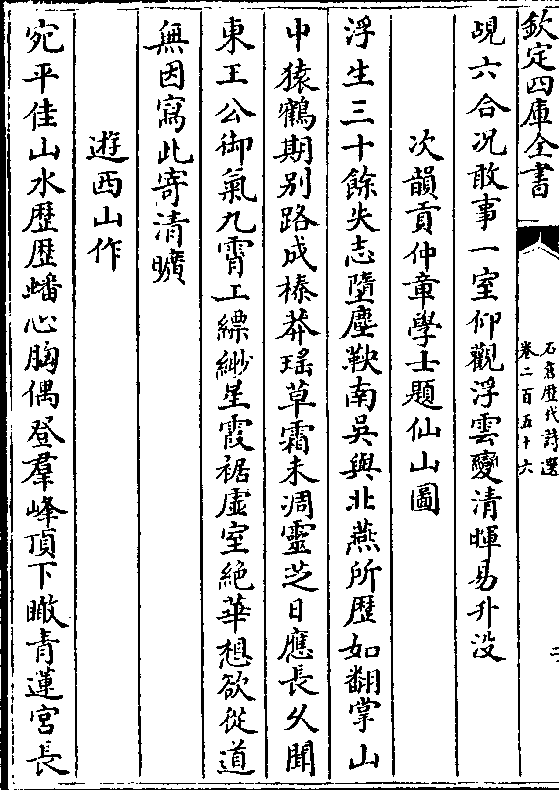 欽定四庫全書
石倉歴代詩選
卷二百五十六
覕六合况敢事一室仰觀浮雲變清暉易升没
次韻貢仲章學士題仙山圖
浮生三十餘失志墮塵鞅南吳與北燕所歴如翻掌山
中猿鶴期别路成榛莽瑶草霜未凋靈芝日應長久聞
東王公御氣九霄上縹緲星霞裾虚室絶華想欲從道
無因寫此寄清曠
遊西山作
宛平佳山水歴歴蟠心胸偶登羣峰頂下瞰青蓮宫長